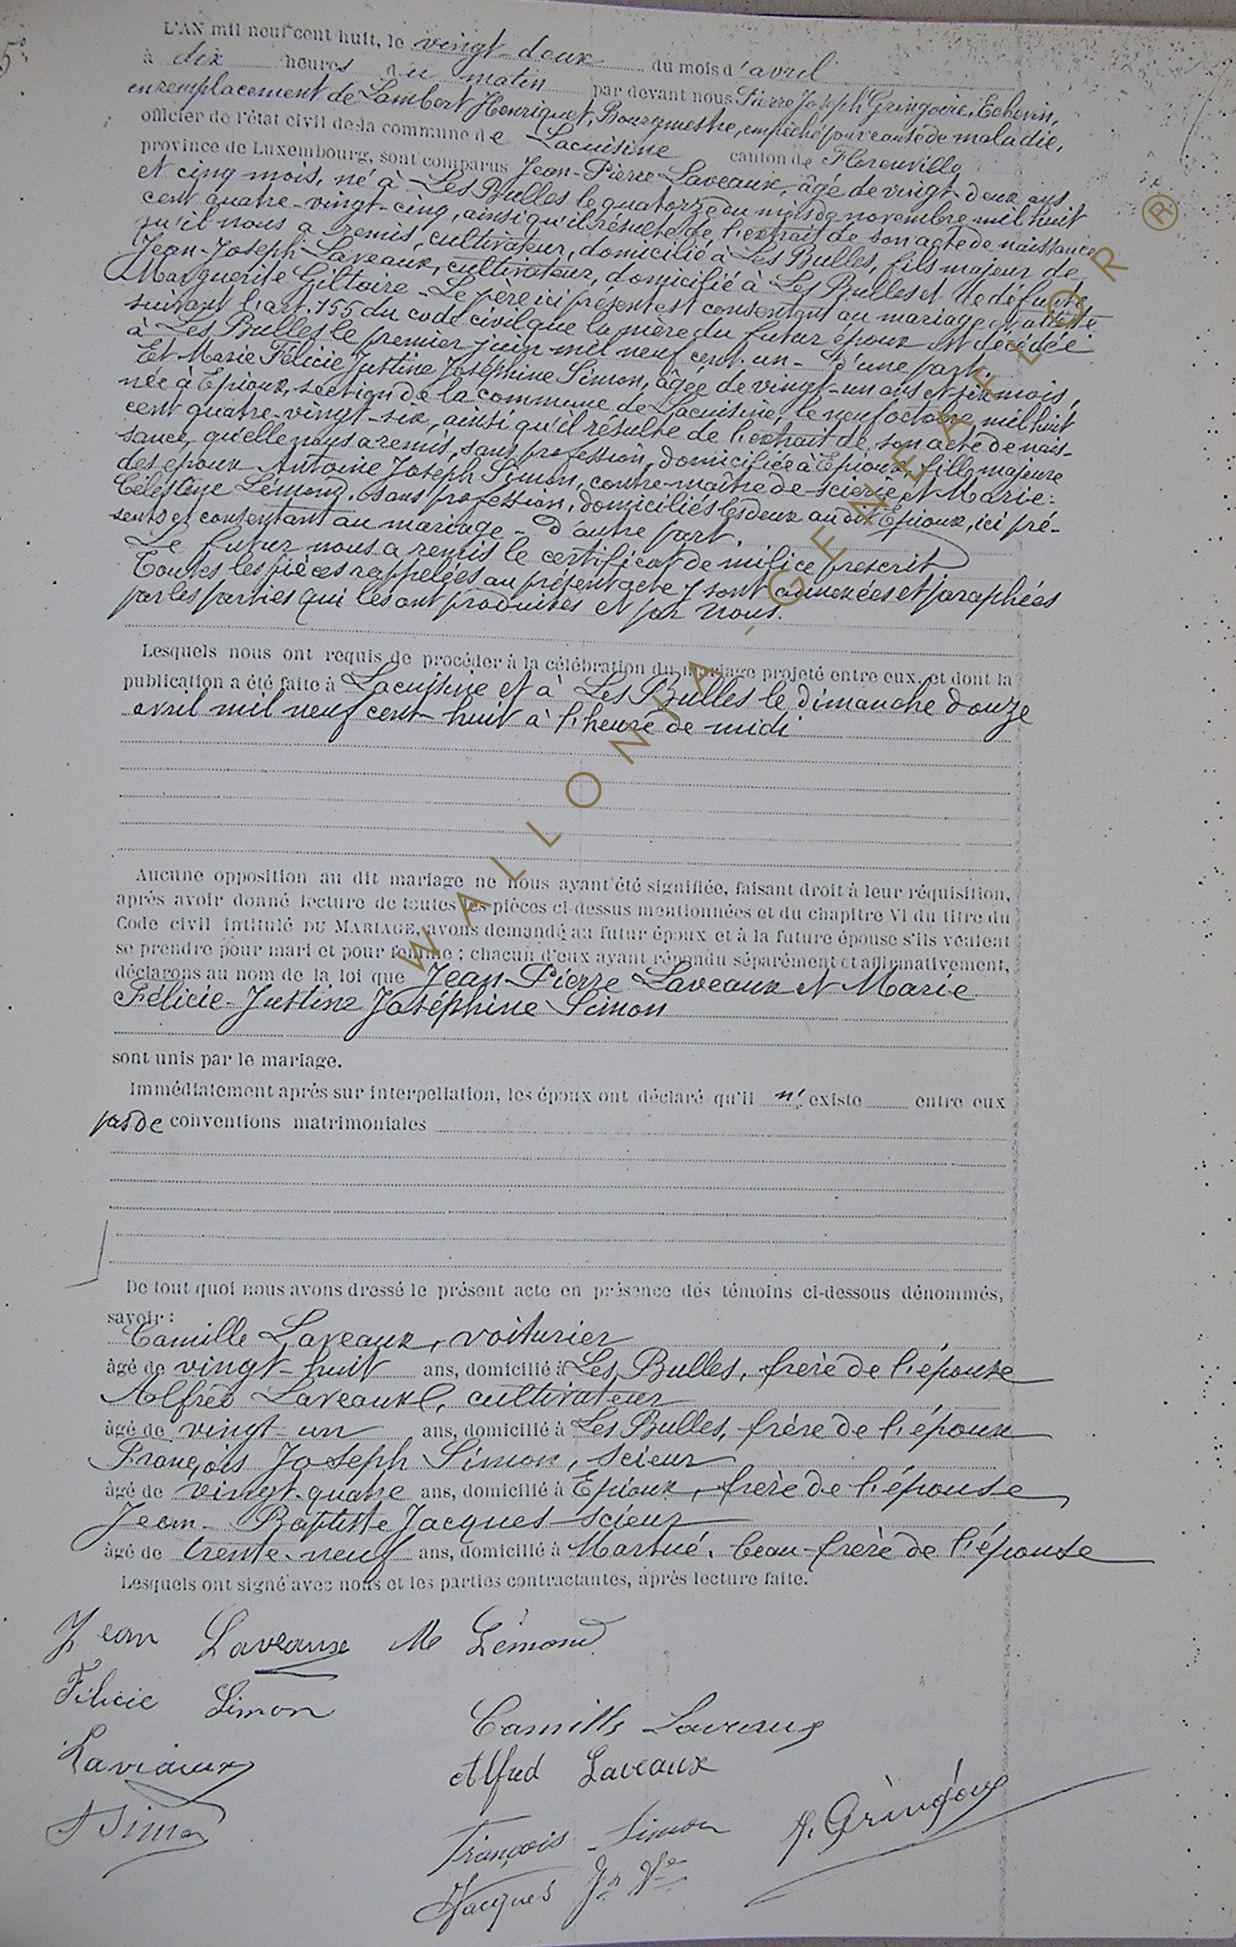 5°
L'AN mil neuf cent huit, le vingt-deux du mois d'avril
à dix heures du matin par devant nous Pierre Joseph Gringoire, Echevin,
en remplacement de Lambert Henriquet, Bourgmestre, empêché pour cause de maladie,
officier de l'état civil de la commune de Lacuisine canton de Florenville
province de Luxembourg, sont comparus Jean-Pierre Laveaux, âgé de vingt-deux ans
et cinq mois, né à Les Bulles le quatorze du mois de novembre mil huit
cent quatre-vingt-cinq, ainsi qu'il résulte de l'extrait de son acte de naissance
qu'il nous a remis, cultivateur, domicilié à Les Bulles, fils majeur de
Jean-Joseph Laveaux, cultivateur, domicilié à Les Bulles et de défunte
Marguerite Giltaire - Le père ici présent est consentant au mariage et atteste
suivant l'art. 155 du code civil que la mère du futur époux est décédée
à Les Bulles le premier juin mil neuf cent-un - D'une part
Et Marie Félicie Justine Joséphine Simon, âgée de vingt-un ans et six mois,
née à Epioux, section de la commune de Lacuisine, le neuf octobre mil huit
cent quatre-vingt-six, ainsi qu'il résulte de l'extrait de son acte de nais-
sance qu'elle nous a remis, sans profession, domiciliée à Epioux, fille majeure
des époux Antoine Joseph Simon, contre-maître de scierie et Marie-
Célestine Lémond, sans profession, domiciliés les deux au dit Epioux, ici pré-
sents et consentant au mariage - D'autre part.
Le futur nous a remis le certificat de milice prescrit
Toutes les pièces rappelées au présent acte y sont annexées et paraphées
par les parties qui les ont produites et par nous.
Lesquels nous ont requis de procéder à la célébration du mariage projeté entre eux, et dont la
publication a été faite à Lacuisine et à Les Bulles le dimanche douze
avril mil neuf cent huit à l'heure de midi
Aucune opposition au dit mariage ne nous ayant été signifiée, faisant droit à leur réquisition,
après avoir donné lecture de toutes les pièces ci-dessus mentionnées et du chapitre VI du titre du
Code civil intitulé DU MARIAGE, avons demandé au futur époux et à la future épouse s'ils veulent
se prendre pour mari et pour femme ; chacun d'eux ayant répondu séparément et affirmativement,
déclarons au nom de la loi que Jean-Pierre Laveaux et Marie
Félicie-Justine Joséphine Simon
sont unis par le mariage.
Immédiatement après sur interpellation, les époux ont déclaré qu'il n' existe entre eux
pas de conventions matrimoniales
De tout quoi nous avons dressé le présent acte en présence des témoins ci-dessous dénommés,
savoir :
Camille Laveaux, voiturier
âgé de vingt-huit ans, domicilié à Les Bulles, frère de l'épouse
Alfred Laveaux, cultivateur
âgé de vingt-un ans, domicilié à Les Bulles, frère de l'époux
François Joseph Simon, scieur
âgé de vingt-quatre ans, domicilié à Epioux, frère de l'épouse
Jean-Baptiste Jacques scieur
âgé de trente-neuf ans, domicilié à Martué, beau-frère de l'épouse
Lesquels ont signé avec nous et les parties contractantes, après lecture faite.
Jean Laveaux M Lémond
Félicie Simon
Camille Laveaux
Laveaux
Alfred Laveaux
A Simon
François Simon
Jacques Jn Bte
WALLONIA-GENEAFLOR ®